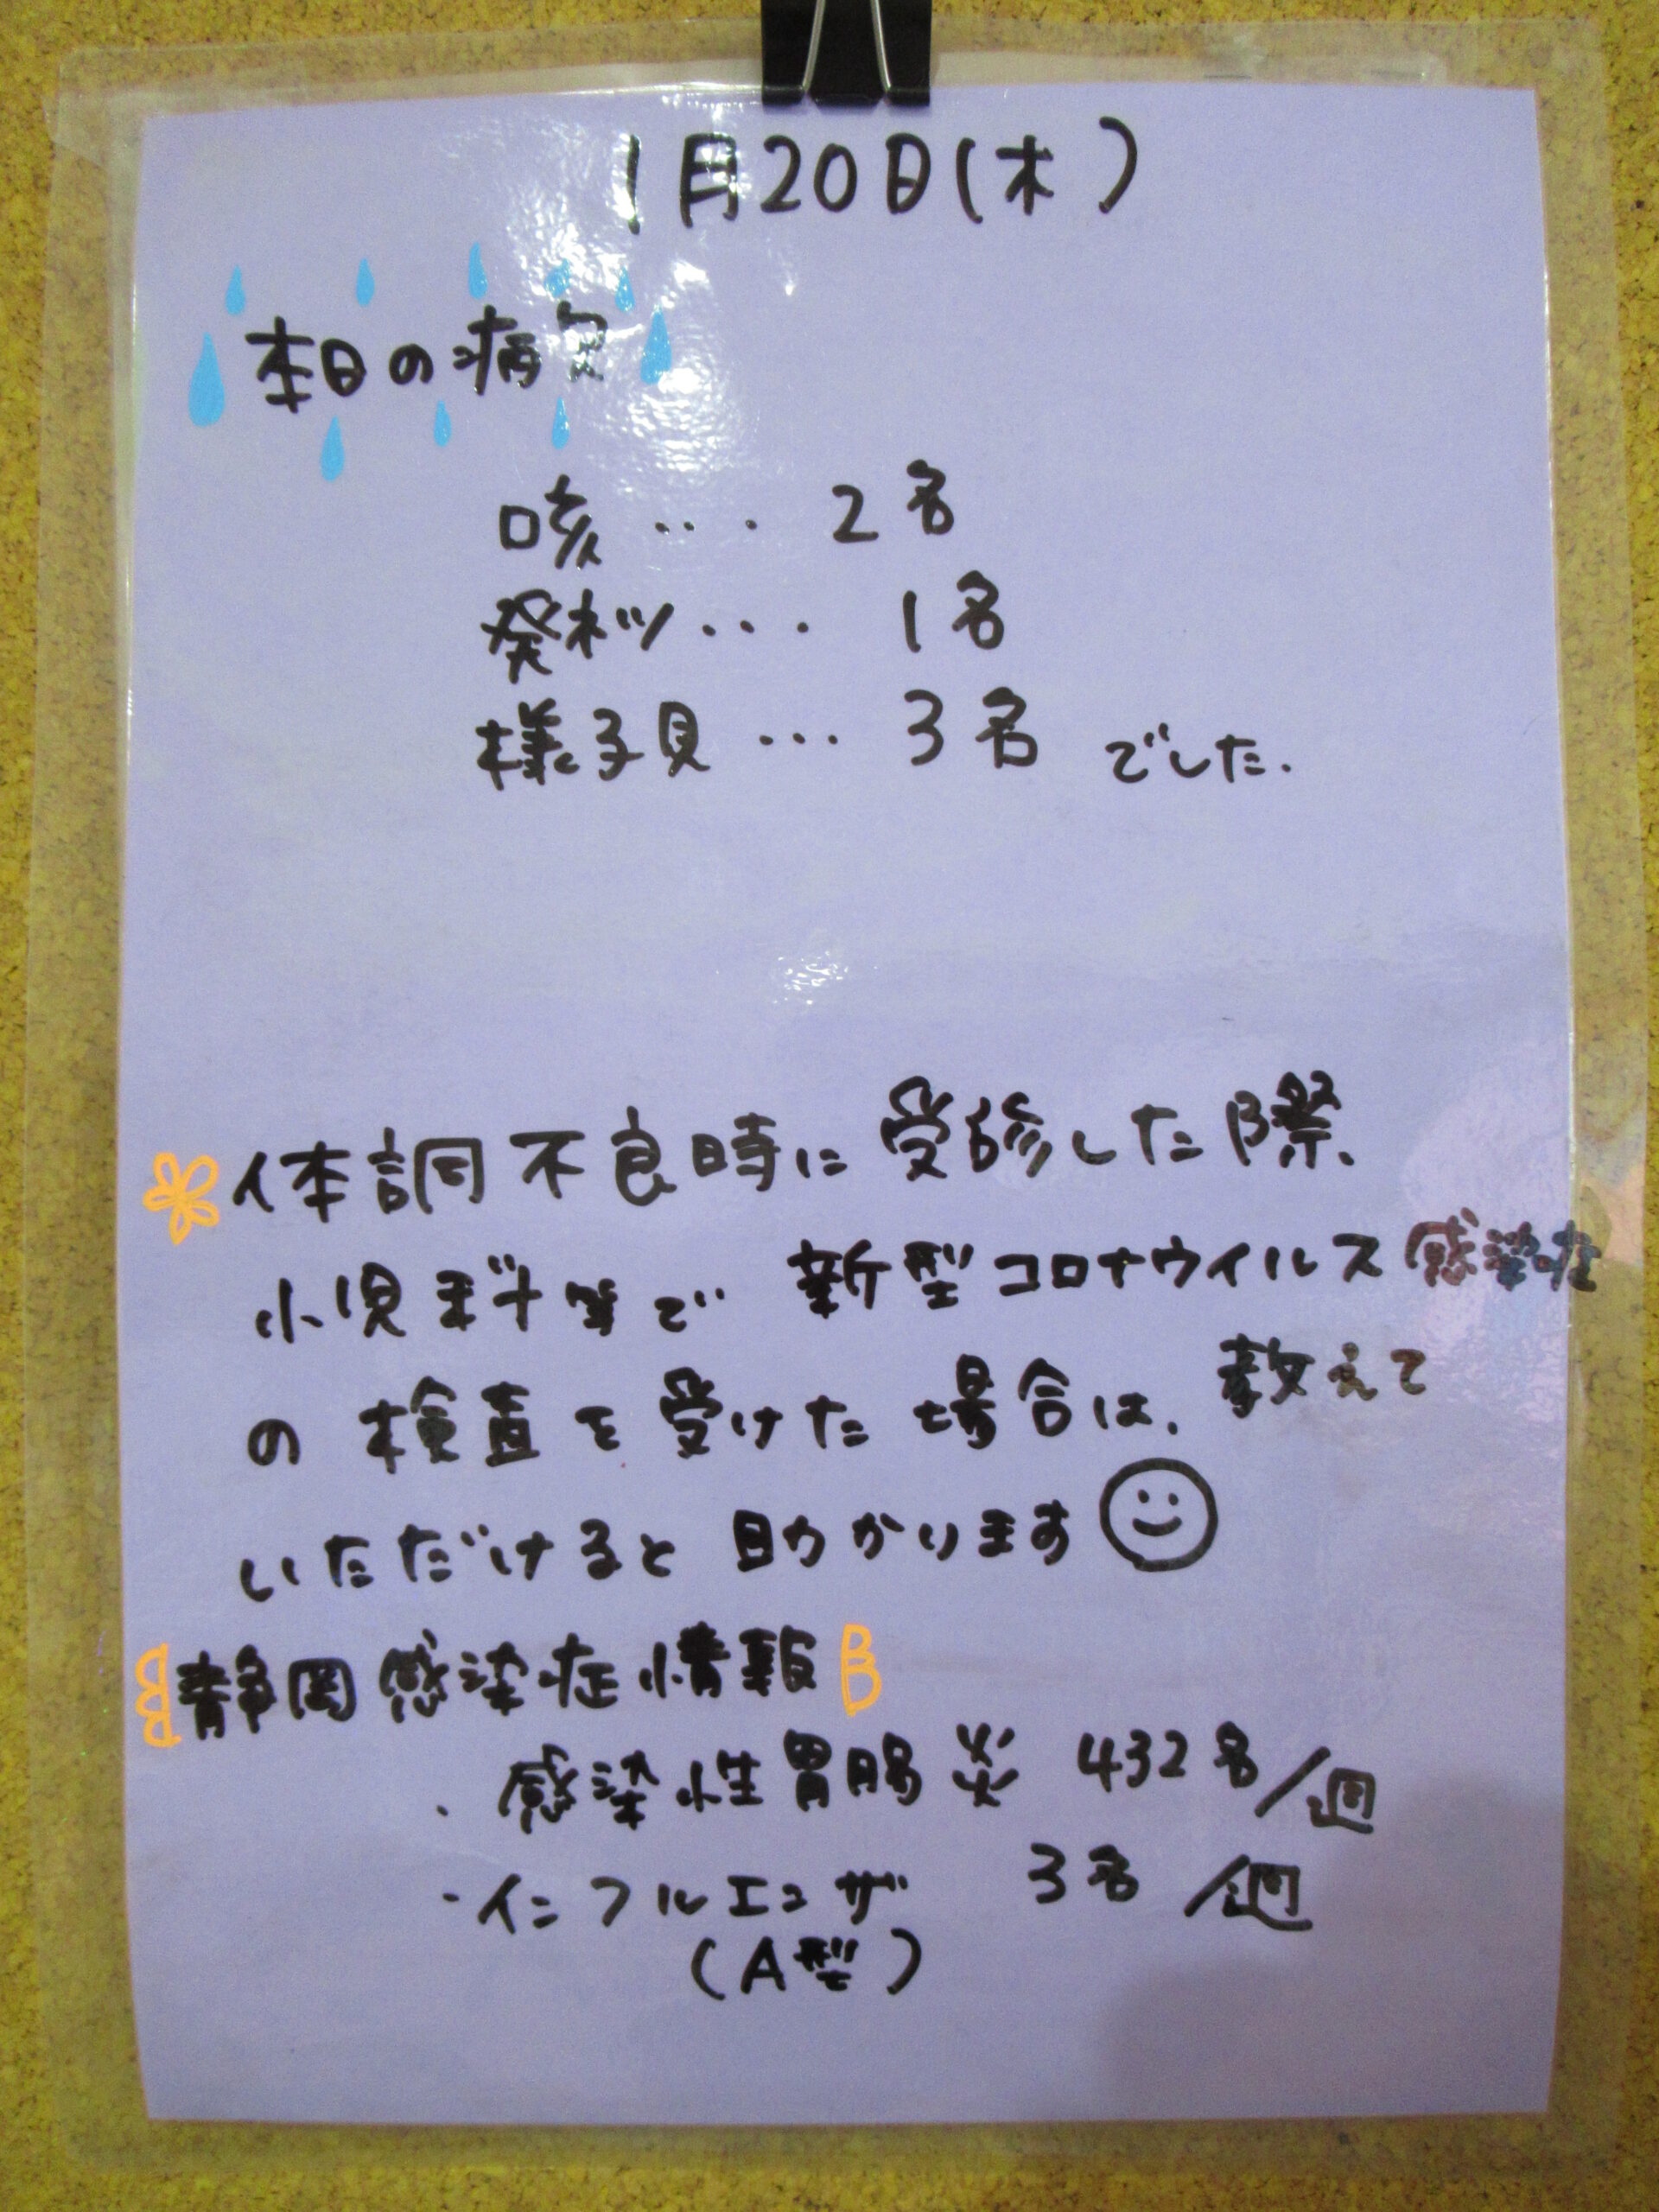 1月20日(木)
本日の病欠
咳… 2名
発ネツ… 1名
様子見… 3名 でした.
体調不良時に受診した際、
小児科等で 新型コロナウイルス感染症
の検査を受けた場合は、教えて
いただけると 助かります
静岡感染症情報
・感染性胃腸炎 432名/週
・インフルエンザ 3名/週
(A型)